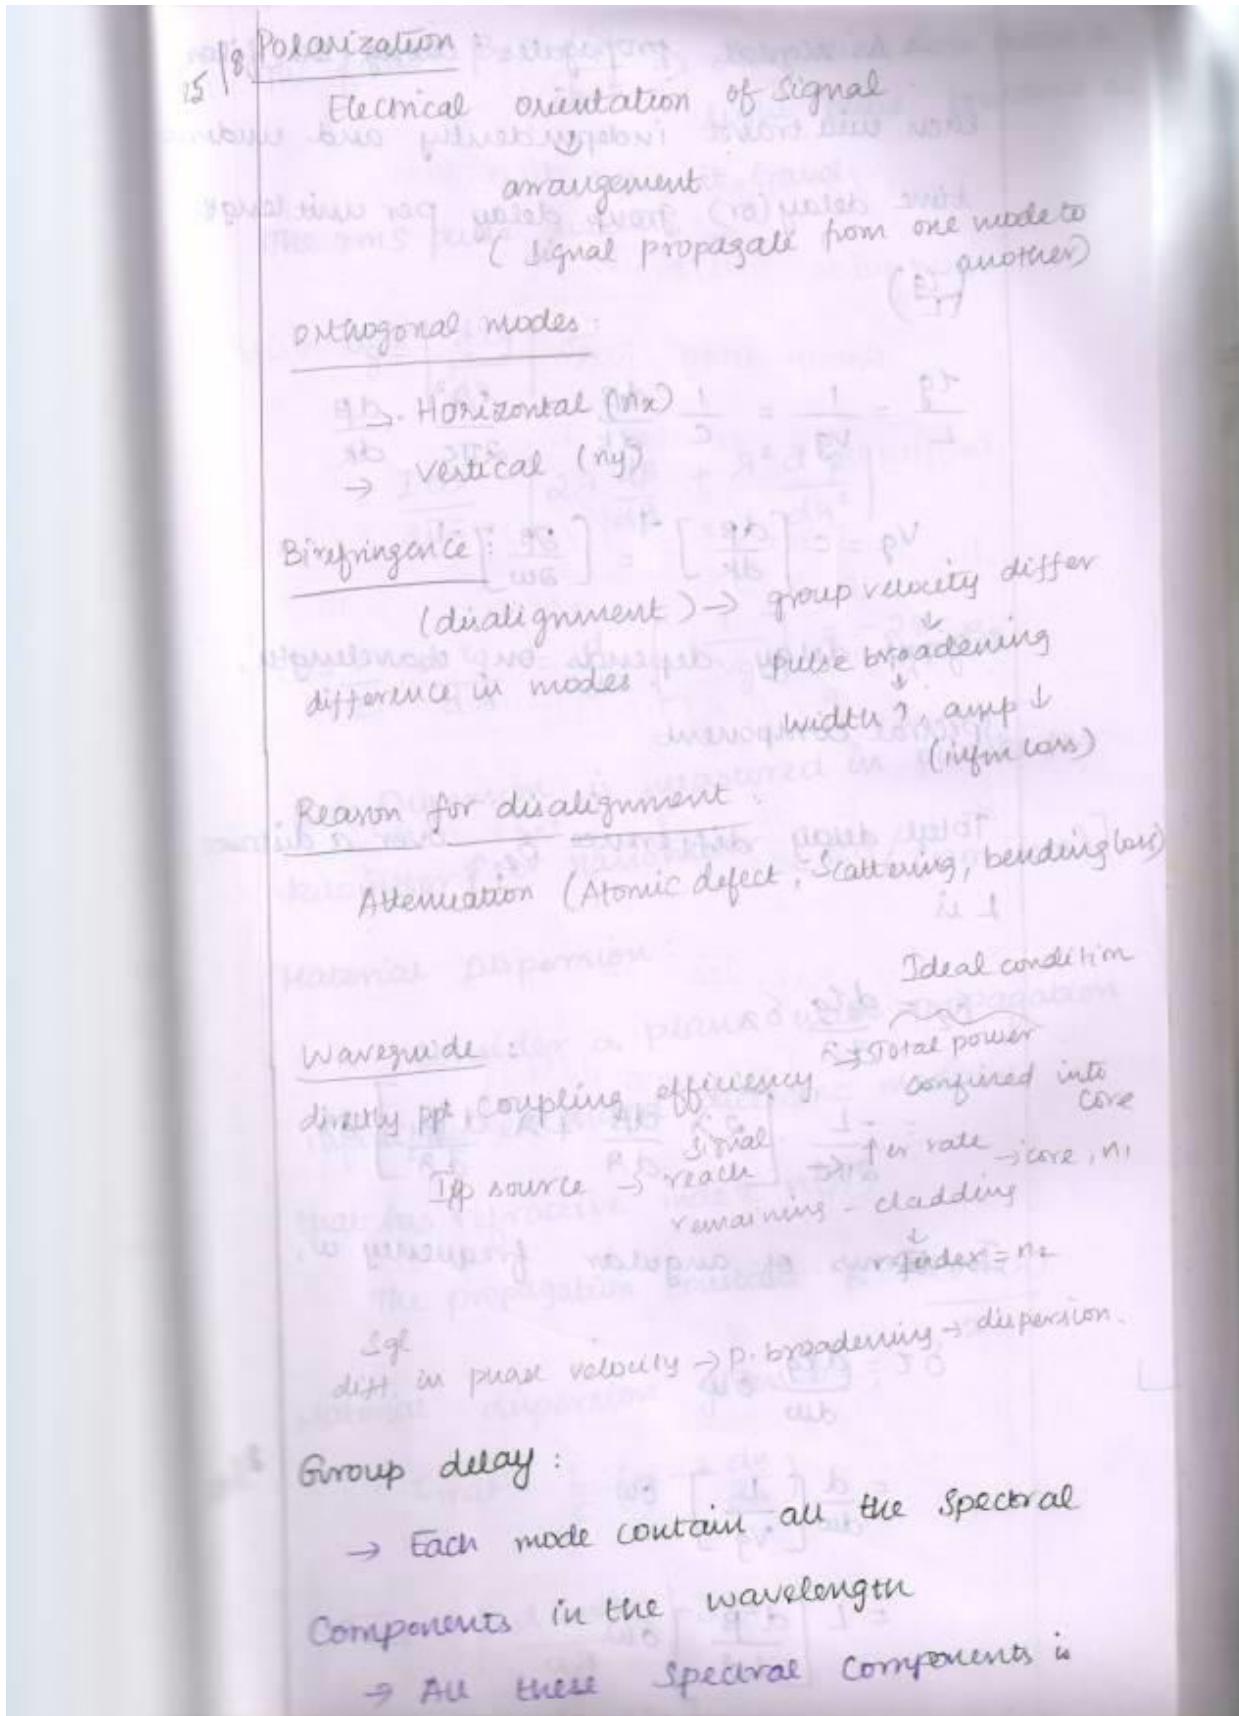 15/8 Polarization :
Electrical orientation of Signal
↓
arrangement
( Signal propagate from one mode to
another)
Orthogonal modes :
→ Horizontal (nx)
→ Vertical (ny)
Birefringence :
(disalignment) → group velocity differ
↓
difference in modes. pulse broadening
↓
width ↑, amp ↓
(infm loss)
Reason for disalignment :
Attenuation (Atomic defect, Scattering, bending loss)
Ideal condition
Waveguide :
→ Total power
directly ppt, coupling efficiency confined into
core
I/p source → signal reach ↑er rate → core, n1
remaining - cladding
↓
index = n2
Sgl
diff. in phase velocity → p. broadenning → dispersion.
Group delay :
→ Each mode contain all the Spectral
Components in the wavelength
→ All these Spectral Components is